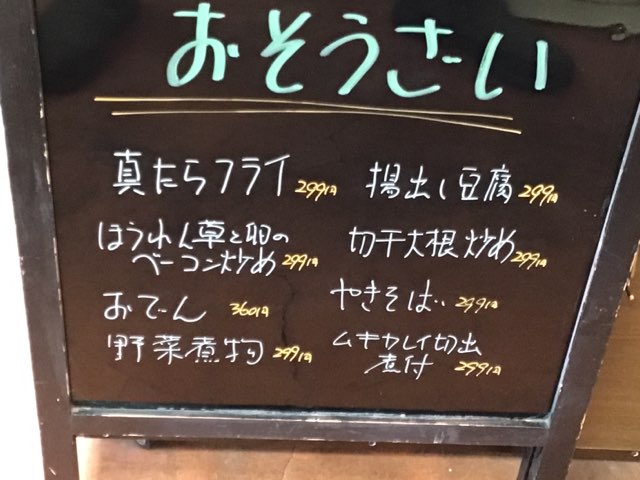 おそうざい
真たらフライ 299円
揚出し豆腐 299円
ほうれん草と卵の
ベーコン炒め 299円
切干大根炒め 299円
おでん 360円
やきそば 299円
野菜煮物 299円
ムキカレイ切出
煮付 299円